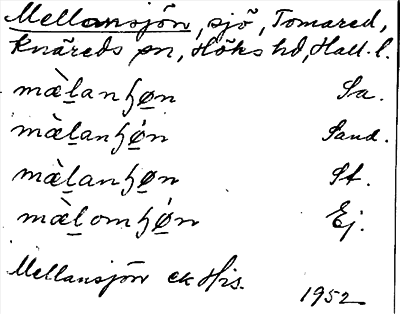 Mellansjön, sjö, Tomared,
Knäreds sn, Höks hd, Hall. l.
mæ̀l̲anɧø̲n Sa.
mæ̀l̲anɧǿ̲n Sand.
mæ̀l̲anɧø̲n St.
mæ̀l̲omɧǿ̲n Ej.
Mellansjön ek His.
1952